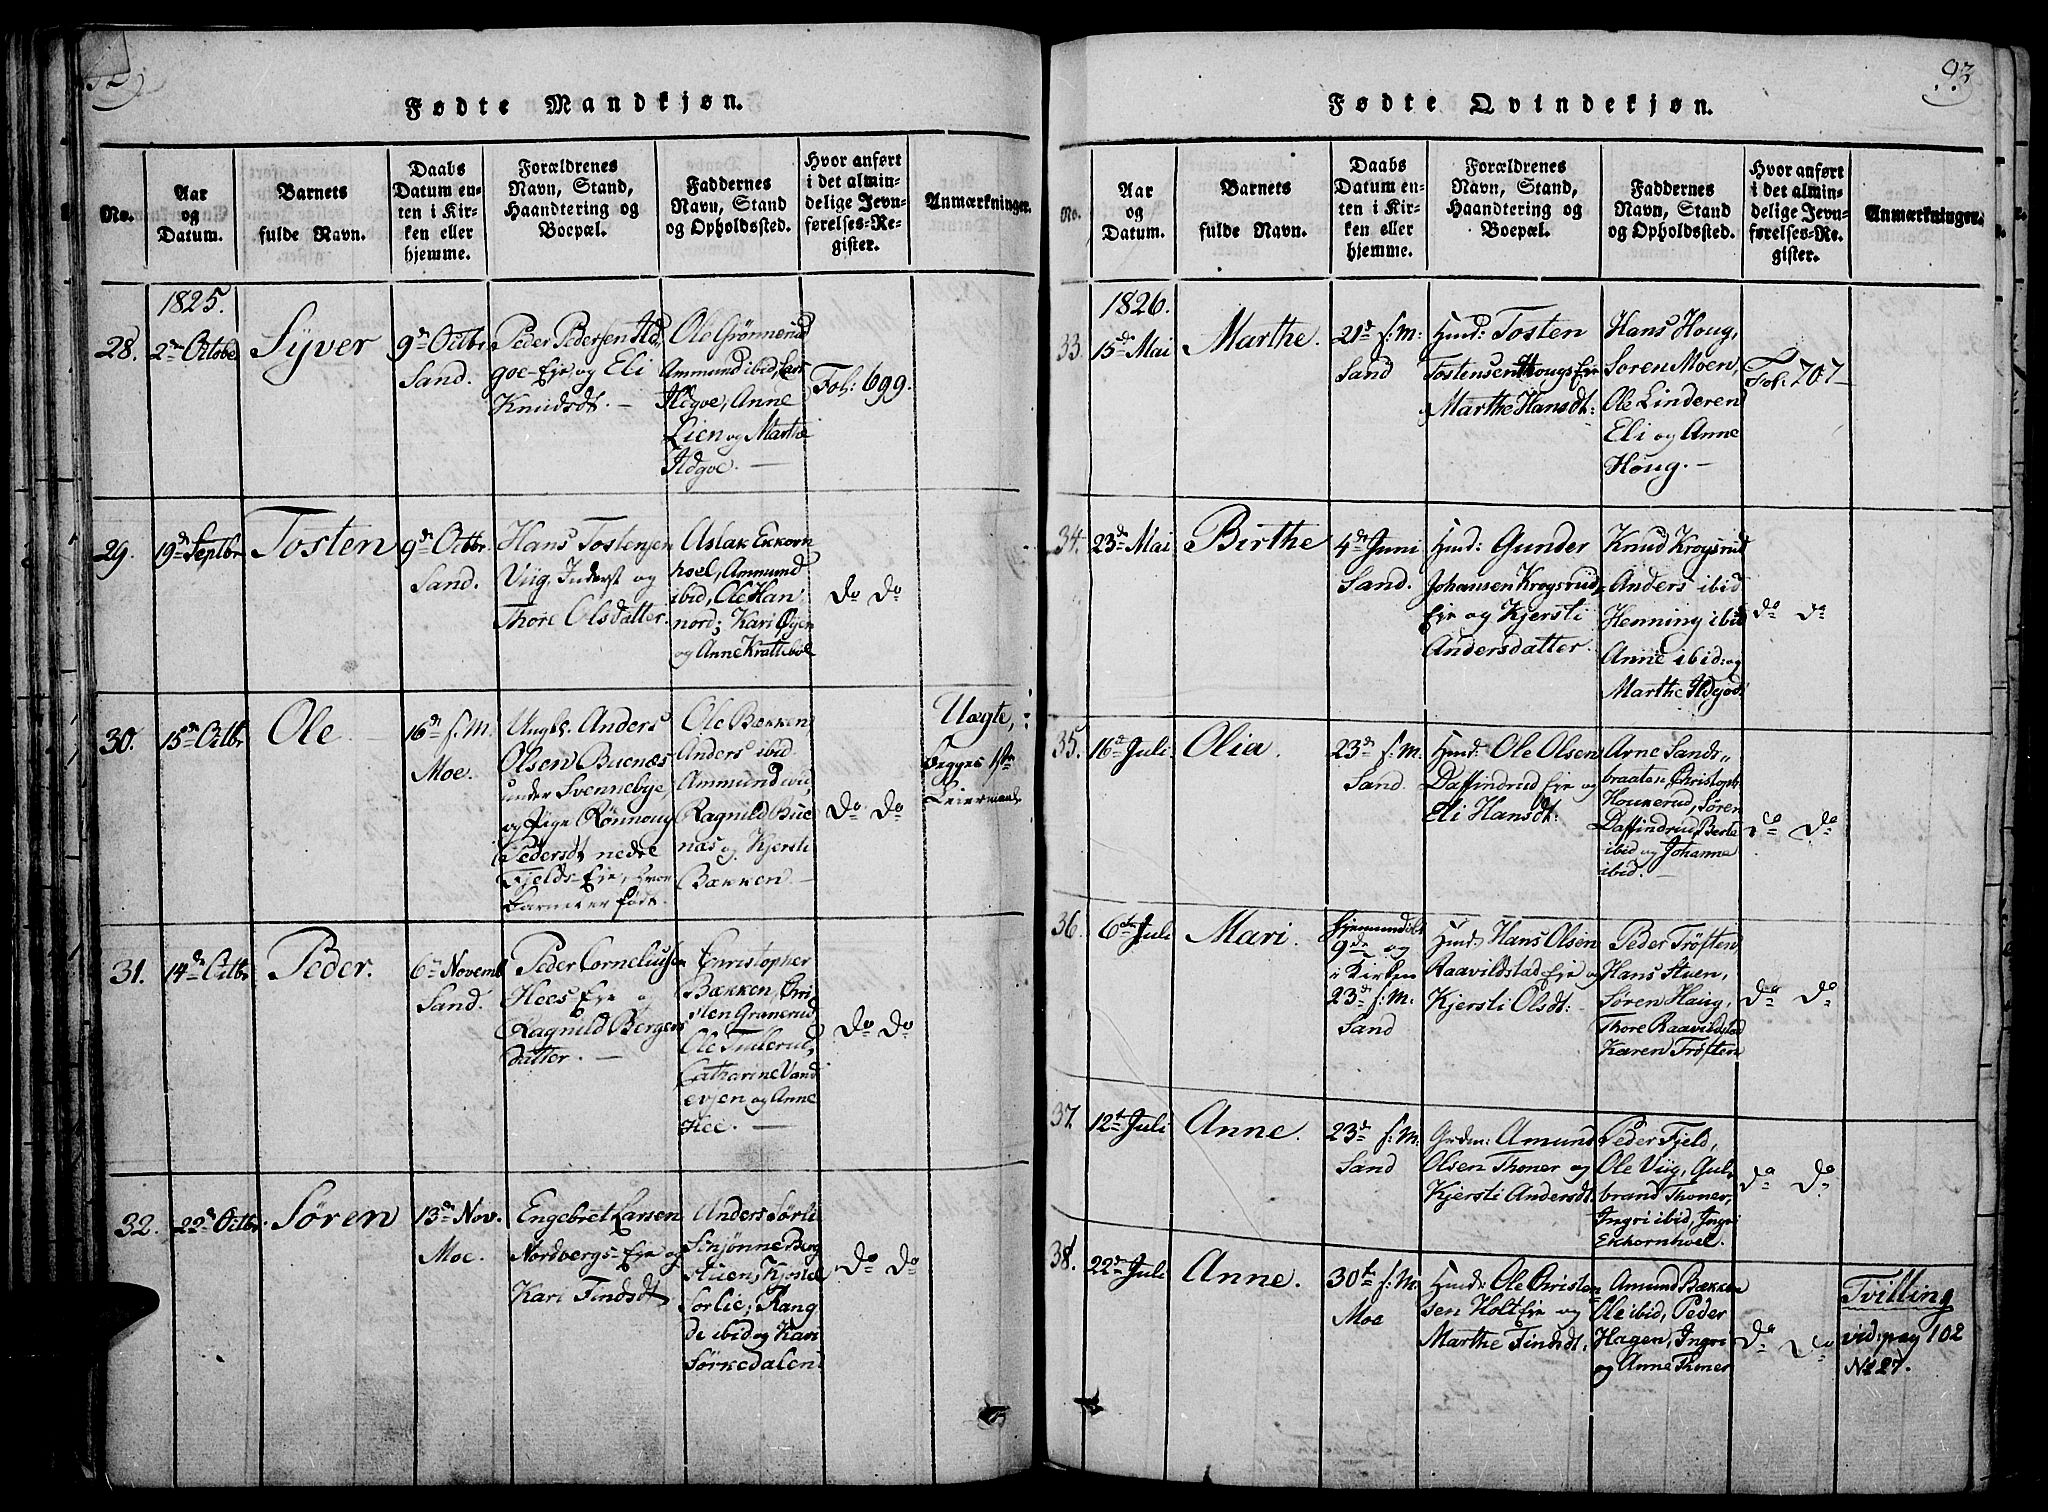 Fødte Mandkjøn.
No.
Aar
og
Datum.
Barnets
fulde Navn.
Daabs
Datum en-
ten i Kir-
ken eller
hjemme.
Forældrenes
Navn, Stand,
Haandtering og
Boepæl.
Faddernes
Navn, Stand
og Opholdssted.
Hvor anført
i det almin-
delige Jevn-
førelses-Re-
gister.
Anmærkninger.
1825.
28.
Syver
9de Octbr
Sand.
Peder Pedersen Ild
goe-Eje og Eli
Knudsdt. –
Ole Grønnerud
Ammund ibid,
Ildgoe, Anne
Lien og Marthe
Ildgoe. –
Fol: 699.
29.
19de Septbr
Tosten
9de Octbr.
Sand.
Hans Tostensen
Viig, Inderst og
Thore Olsdatter.
Aslak Ekkorn
hoel, Ammund
ibid, Ole Han
nord; Kari Øyen
og Anne Krattebøe
do do
30.
15de Octbr
Ole
16de s. M.
Moe.
Ungk. Anders
Olsen Buenæs
under Svennebye,
og Pige Rønnoug
Pedersdt, nedre
Fjelds-Eje, hvor
Barnet er født.
Ole Bækken
Anders ibid.
Ammund ibid,
Ragnild Bue
næs og Kjersti
Bækken –
do do
Uægte,
Begges 1ste
Leiermaal
31.
14de Octbr
Peder.
6te Novemb
Sand.
Peder Corneliusen
Hees Eje og
Ragnild Bergers
datter. –
Christopher
Bækken, Chri
sten Granerud,
Ole
Catharine Vand
evjen og Anne
Hee. –
do do
32.
22de Octbr.
Søren
13de Nov.
Moe.
Engebret Larsen
Nordbergs-Eje og
Kari Findsdt.
Anders Sørli
Sinjønne Berg
stuen,
Sorlie; Rang
di ibid og Kari
Sørkedalen
do do
93
Fødte Qvindekjøn.
No.
Aar
og
Datum.
Barnets
fulde Navn.
Daabs
Datum en-
ten i Kir-
ken eller
hjemme.
Forældrenes
Navn, Stand,
Haandtering og
Boepæl.
Faddernes
Navn, Stand
og Opholdssted.
Hvor anført
i det almin-
delige Jevn-
førelses-Re-
gister.
Anmærkninger.
1826.
33.
15de Mai
Marthe.
21de s: M:
Sand
Huusd: Tosten
Tostensen Hougs Eje
Marthe Hansdt:
Hans Houg,
Søren Moen,
Ole Linderen
Eli og Anne
Houg. –
Fol. 707–
34.
23de Mai
Birthe
4de Juni
Sand.
Huusd: Gunder
Johansen Krogsrud,
Eje og Kjersti
Andersdatter.
Knud Krogsrud
Anders ibid
Henning ibid
Anne ibid: og
Marthe
do do
35.
16de Juli.
Olia.
23de s. M.
Sand.
Huusd: Ole Olsen
Daffindrud Eje og
Eli Hansdt:
Arne Sands-
braaten, Christoph:
Houkerud, Søren
Daffindrud, Berte
ibid og Johanne
ibid. –
do do
36.
6te Juli
Mari.
Hjemmedøbt
9de og
i Kirken
23de s: M.
Sand
Huusd: Hans Olsen
Raavildstad Eje og
Kjersti Olsdt:
Peder Trøften,
Hans Stuen,
Søren Haug,
Thore Raavildstad
Karen Trøften
do do
37.
12te Juli
Anne.
23de s: M.
Sand
Grdm: Amund
Olsen Thoner og
Kjersti Andersdt.
Peder Fjeld,
Ole Viig, Gul-
brand Thoner,
Ingri ibid, Ingri
Ekhornhoel.
do do
38.
22de Juli
Anne.
30te s: M.
Moe
Huusd: Ole Christen
sen Holt Eje og
Marthe Findsdt.
Amund Bækken
Ole ibid, Peder
Hagen, Ingri
og Anne Thoner
do do
Tvilling
vid: pag 102
No 27.